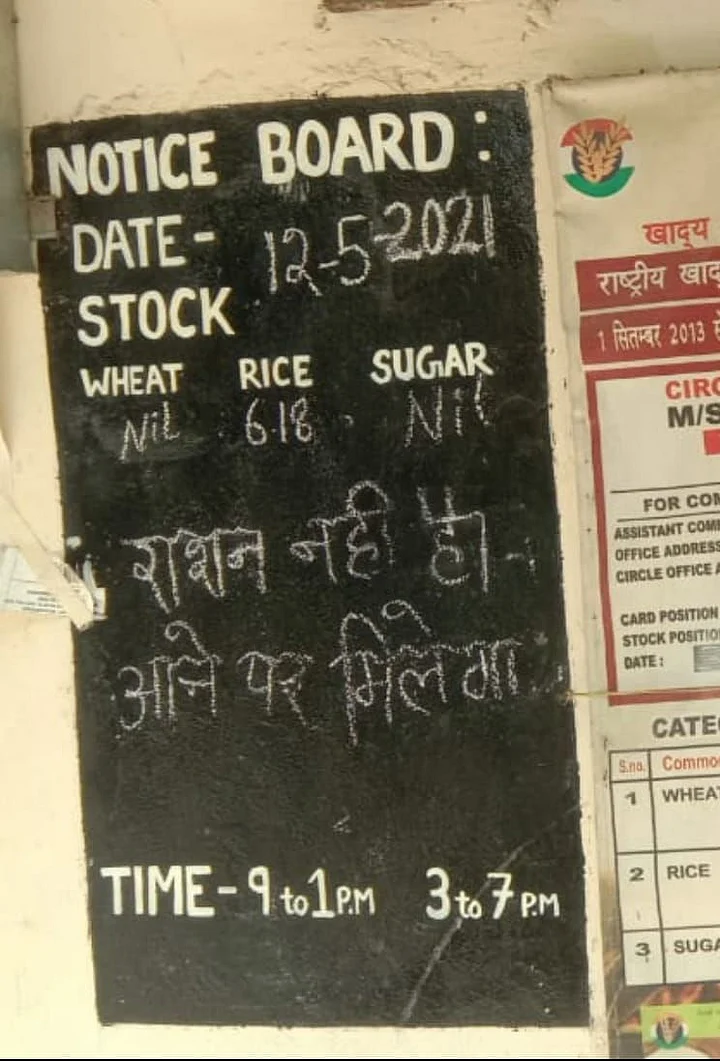 NOTICE BOARD:
DATE - 12-5-2021
STOCK
WHEAT RICE SUGAR
Nil 6.18 Nil
राशन नही है।
आने पर मिलेगा
TIME - 9 to 1 P.M 3 to 7 P.M
खाद्य
राष्ट्रीय
1 सितम्बर 2013 से
M/S
FOR
ASSISTANT
OFFICE ADDRESS
CIRCLE OFFICE
CARD POSITION
STOCK
DATE :
S.no.
1 WHEAT
2 RICE
3